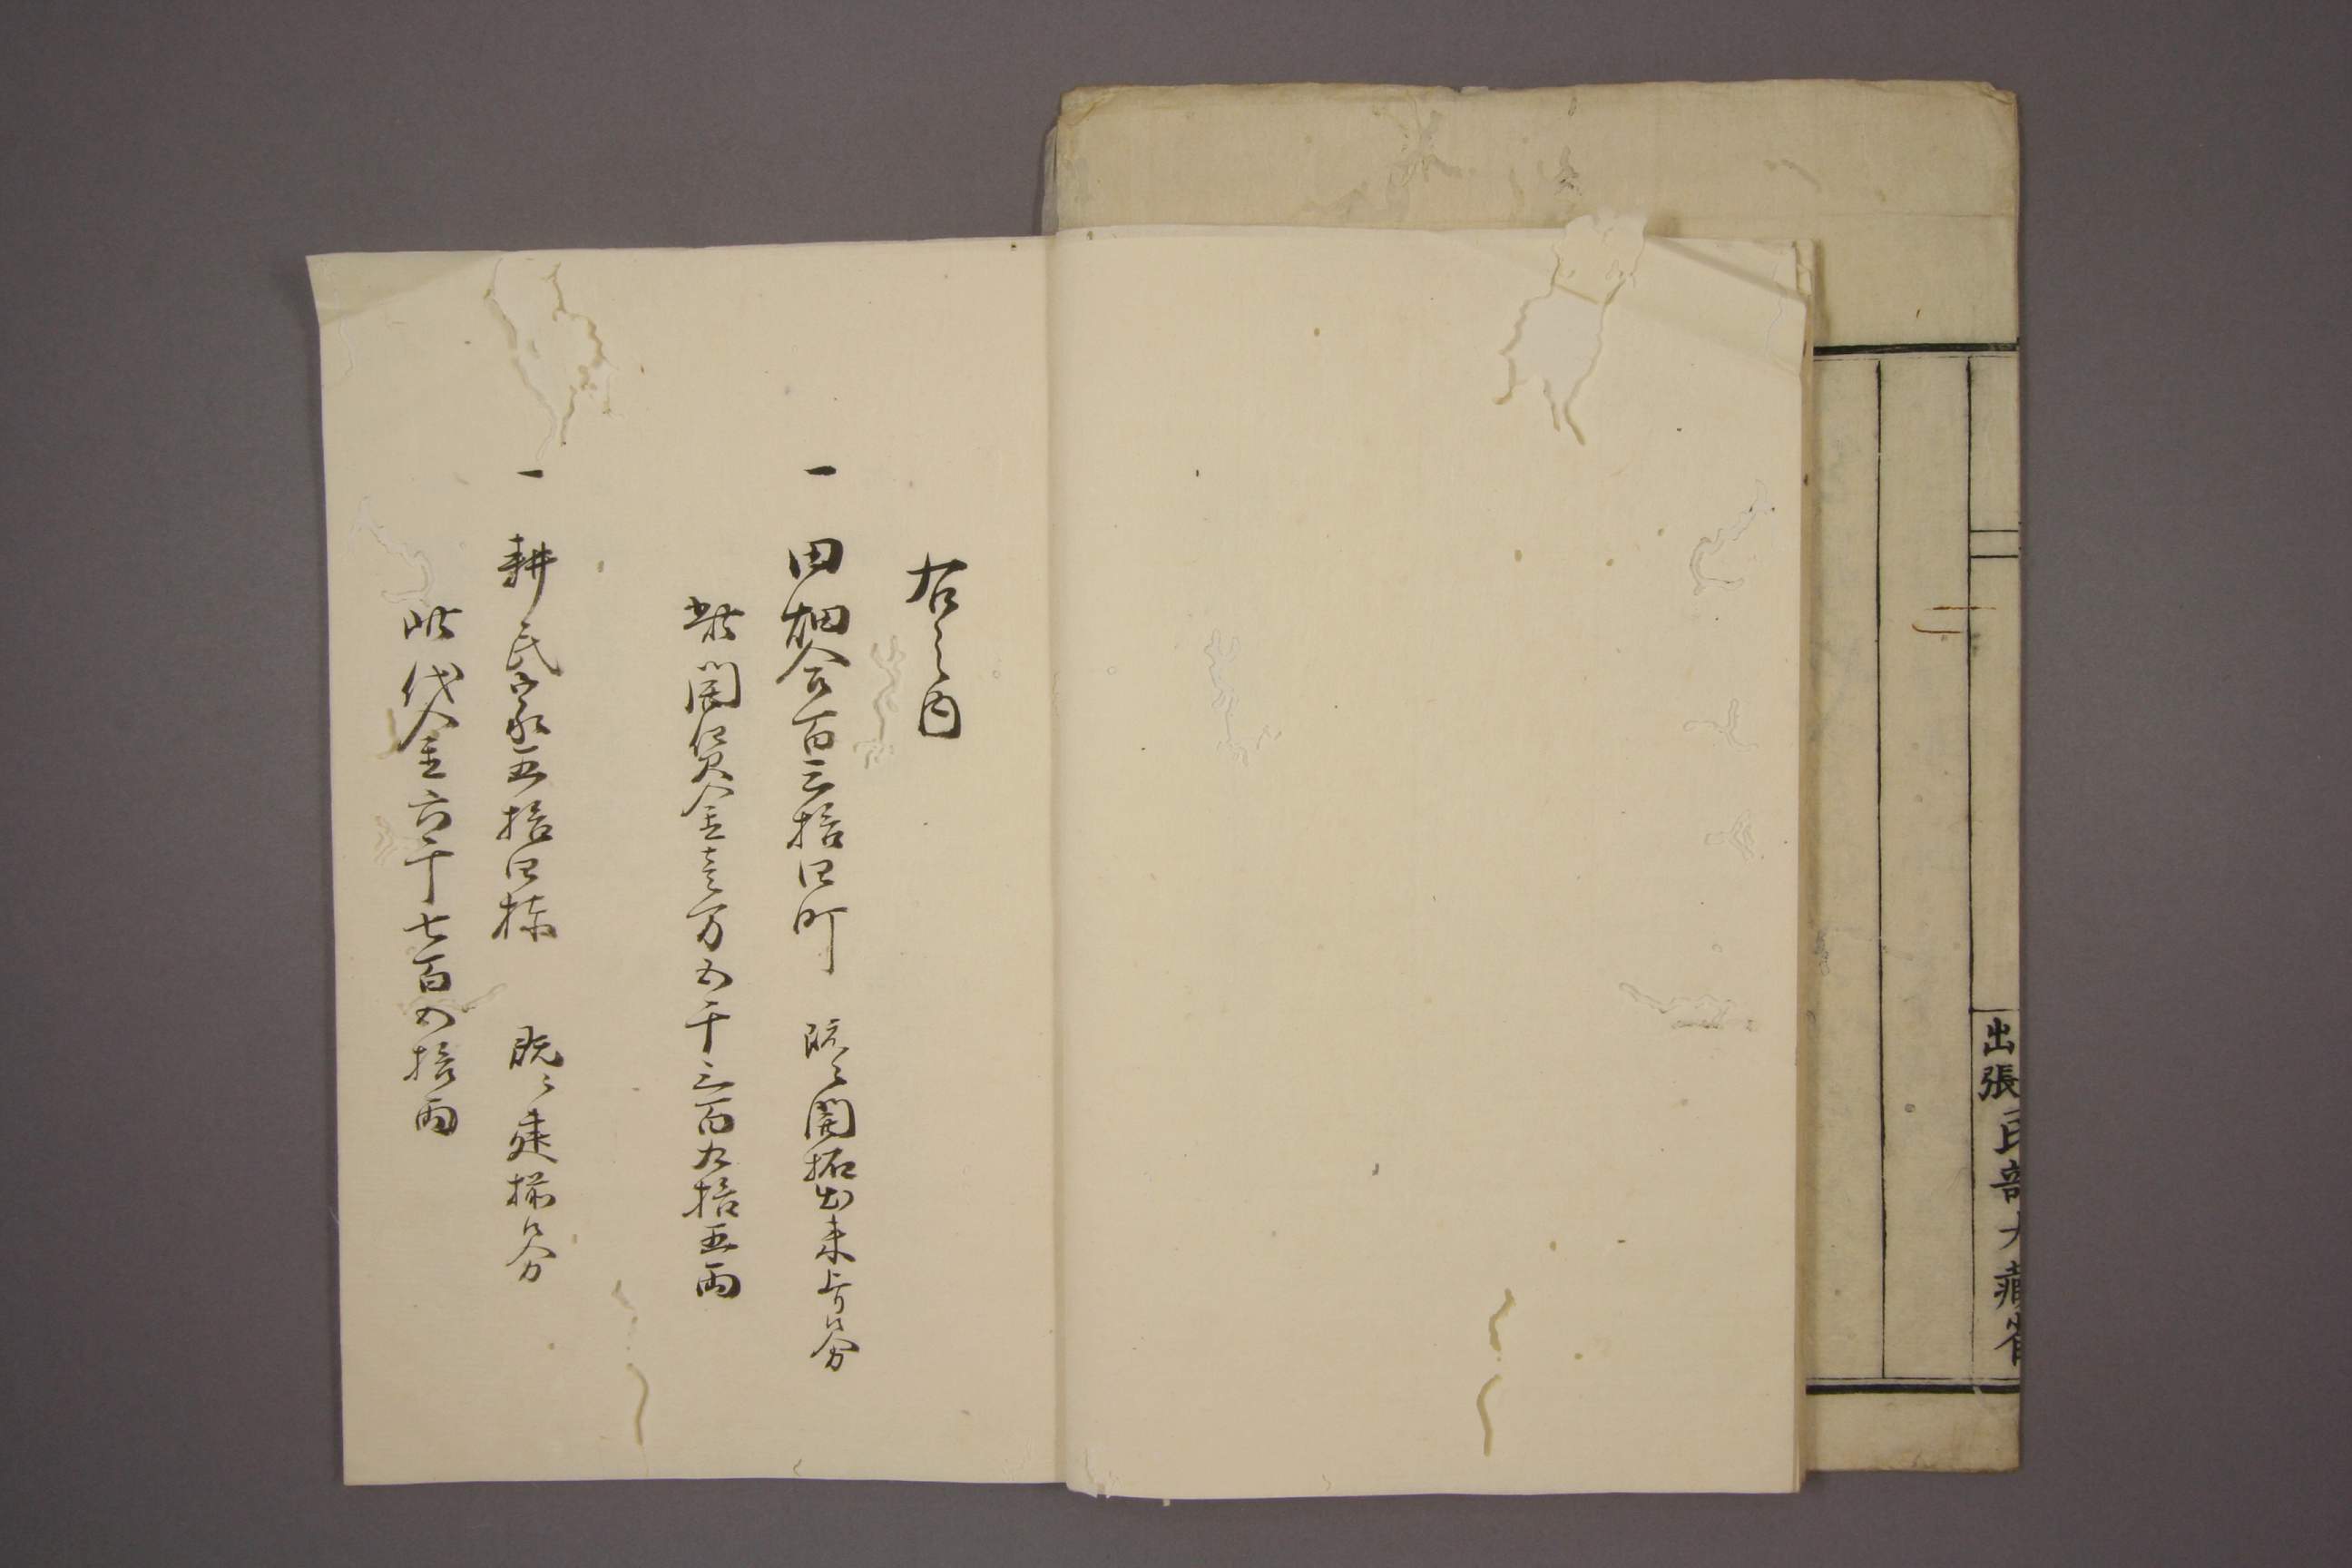 出張 民部大蔵省
右之内
一 田畑合百三拾四町 既ニ開拓出来上り候分
此開墾金壱万五千三百九拾五両
一 耕民家五拾四棟 既ニ建揃候分
此代金六千七百五拾両